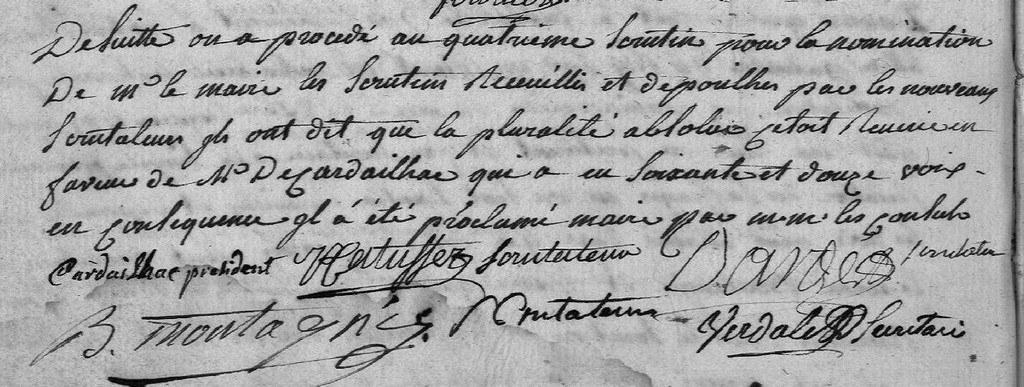 De suitte on a procedé au quatrieme scrutin pour la nomination
De mr le maire les scrutins Recueüillis et depouilhes par les nouveaux
scrutateurs ils ont dit que la pluralité absolue cetoit Reunie en
faveur de Mr De Cardailhac qui a eu soixante et douze voix -
en consequence il à été proclamé maire par m.m. les consuls
Cardailhac president scrutateur scrutateur
B. montagnés. scrutateur Verdale secretaire